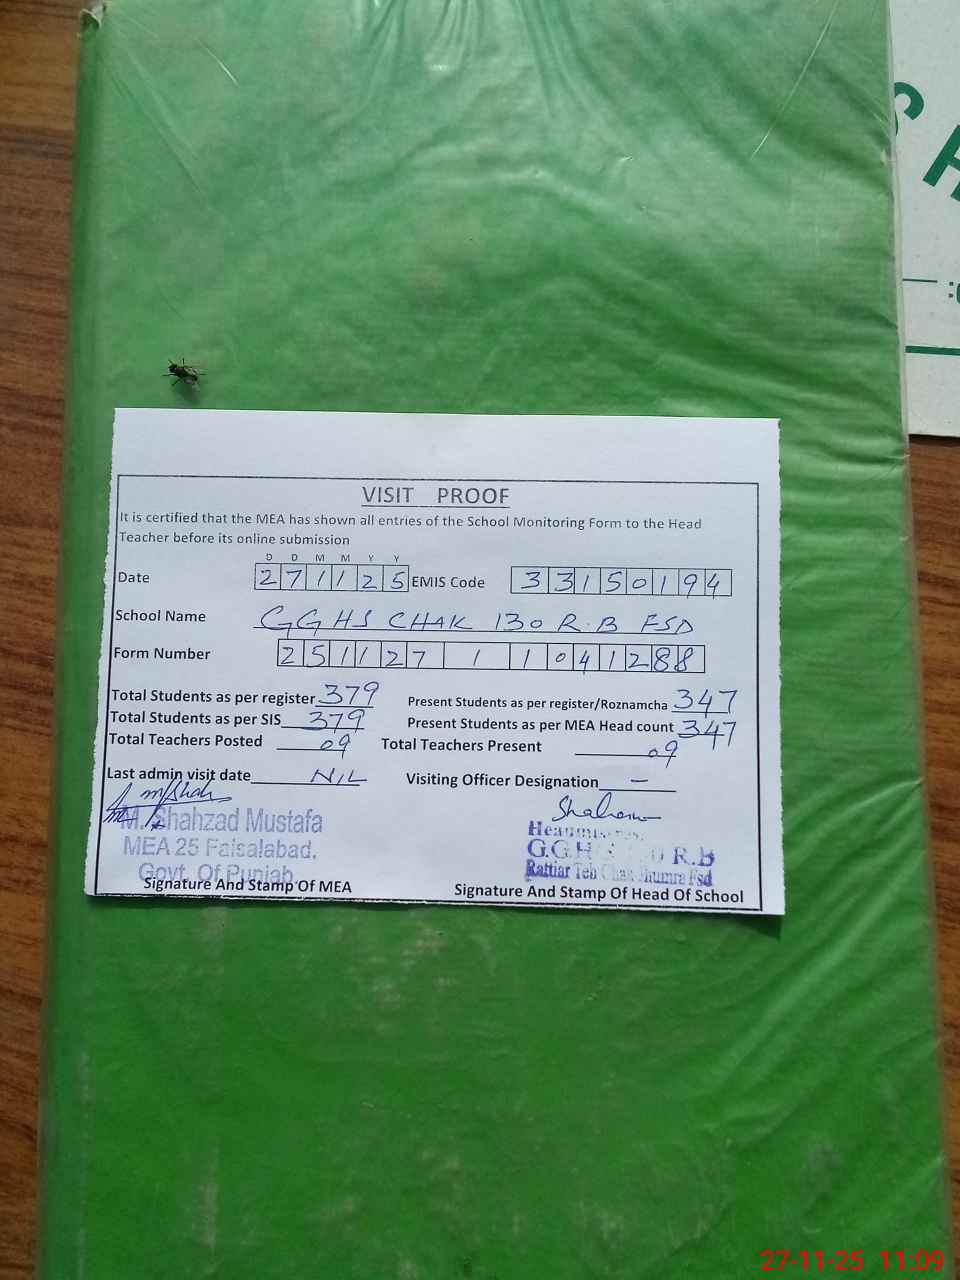 S H
VISIT PROOF
It is certified that the MEA has shown all entries of the School Monitoring Form to the Head
Teacher before its online submission
D D M M Y Y
Date 271125 EMIS Code 33150194
School Name GGHS CHAK 130 R.B FSD
Form Number 251127 1 1041288
Total Students as per register 379 Present Students as per register/Roznamcha 347
Total Students as per SIS 379 Present Students as per MEA Head count 347
Total Teachers Posted 09 Total Teachers Present 09
Last admin visit date NIL Visiting Officer Designation –
M. Shahzad Mustafa
MEA 25 Faisalabad.
Govt. Of Punjab
Signature And Stamp Of MEA
G.G.H 0 R.B
Teh Chak Jhumra Fsd
Signature And Stamp Of Head Of School
27-11-25 11:09